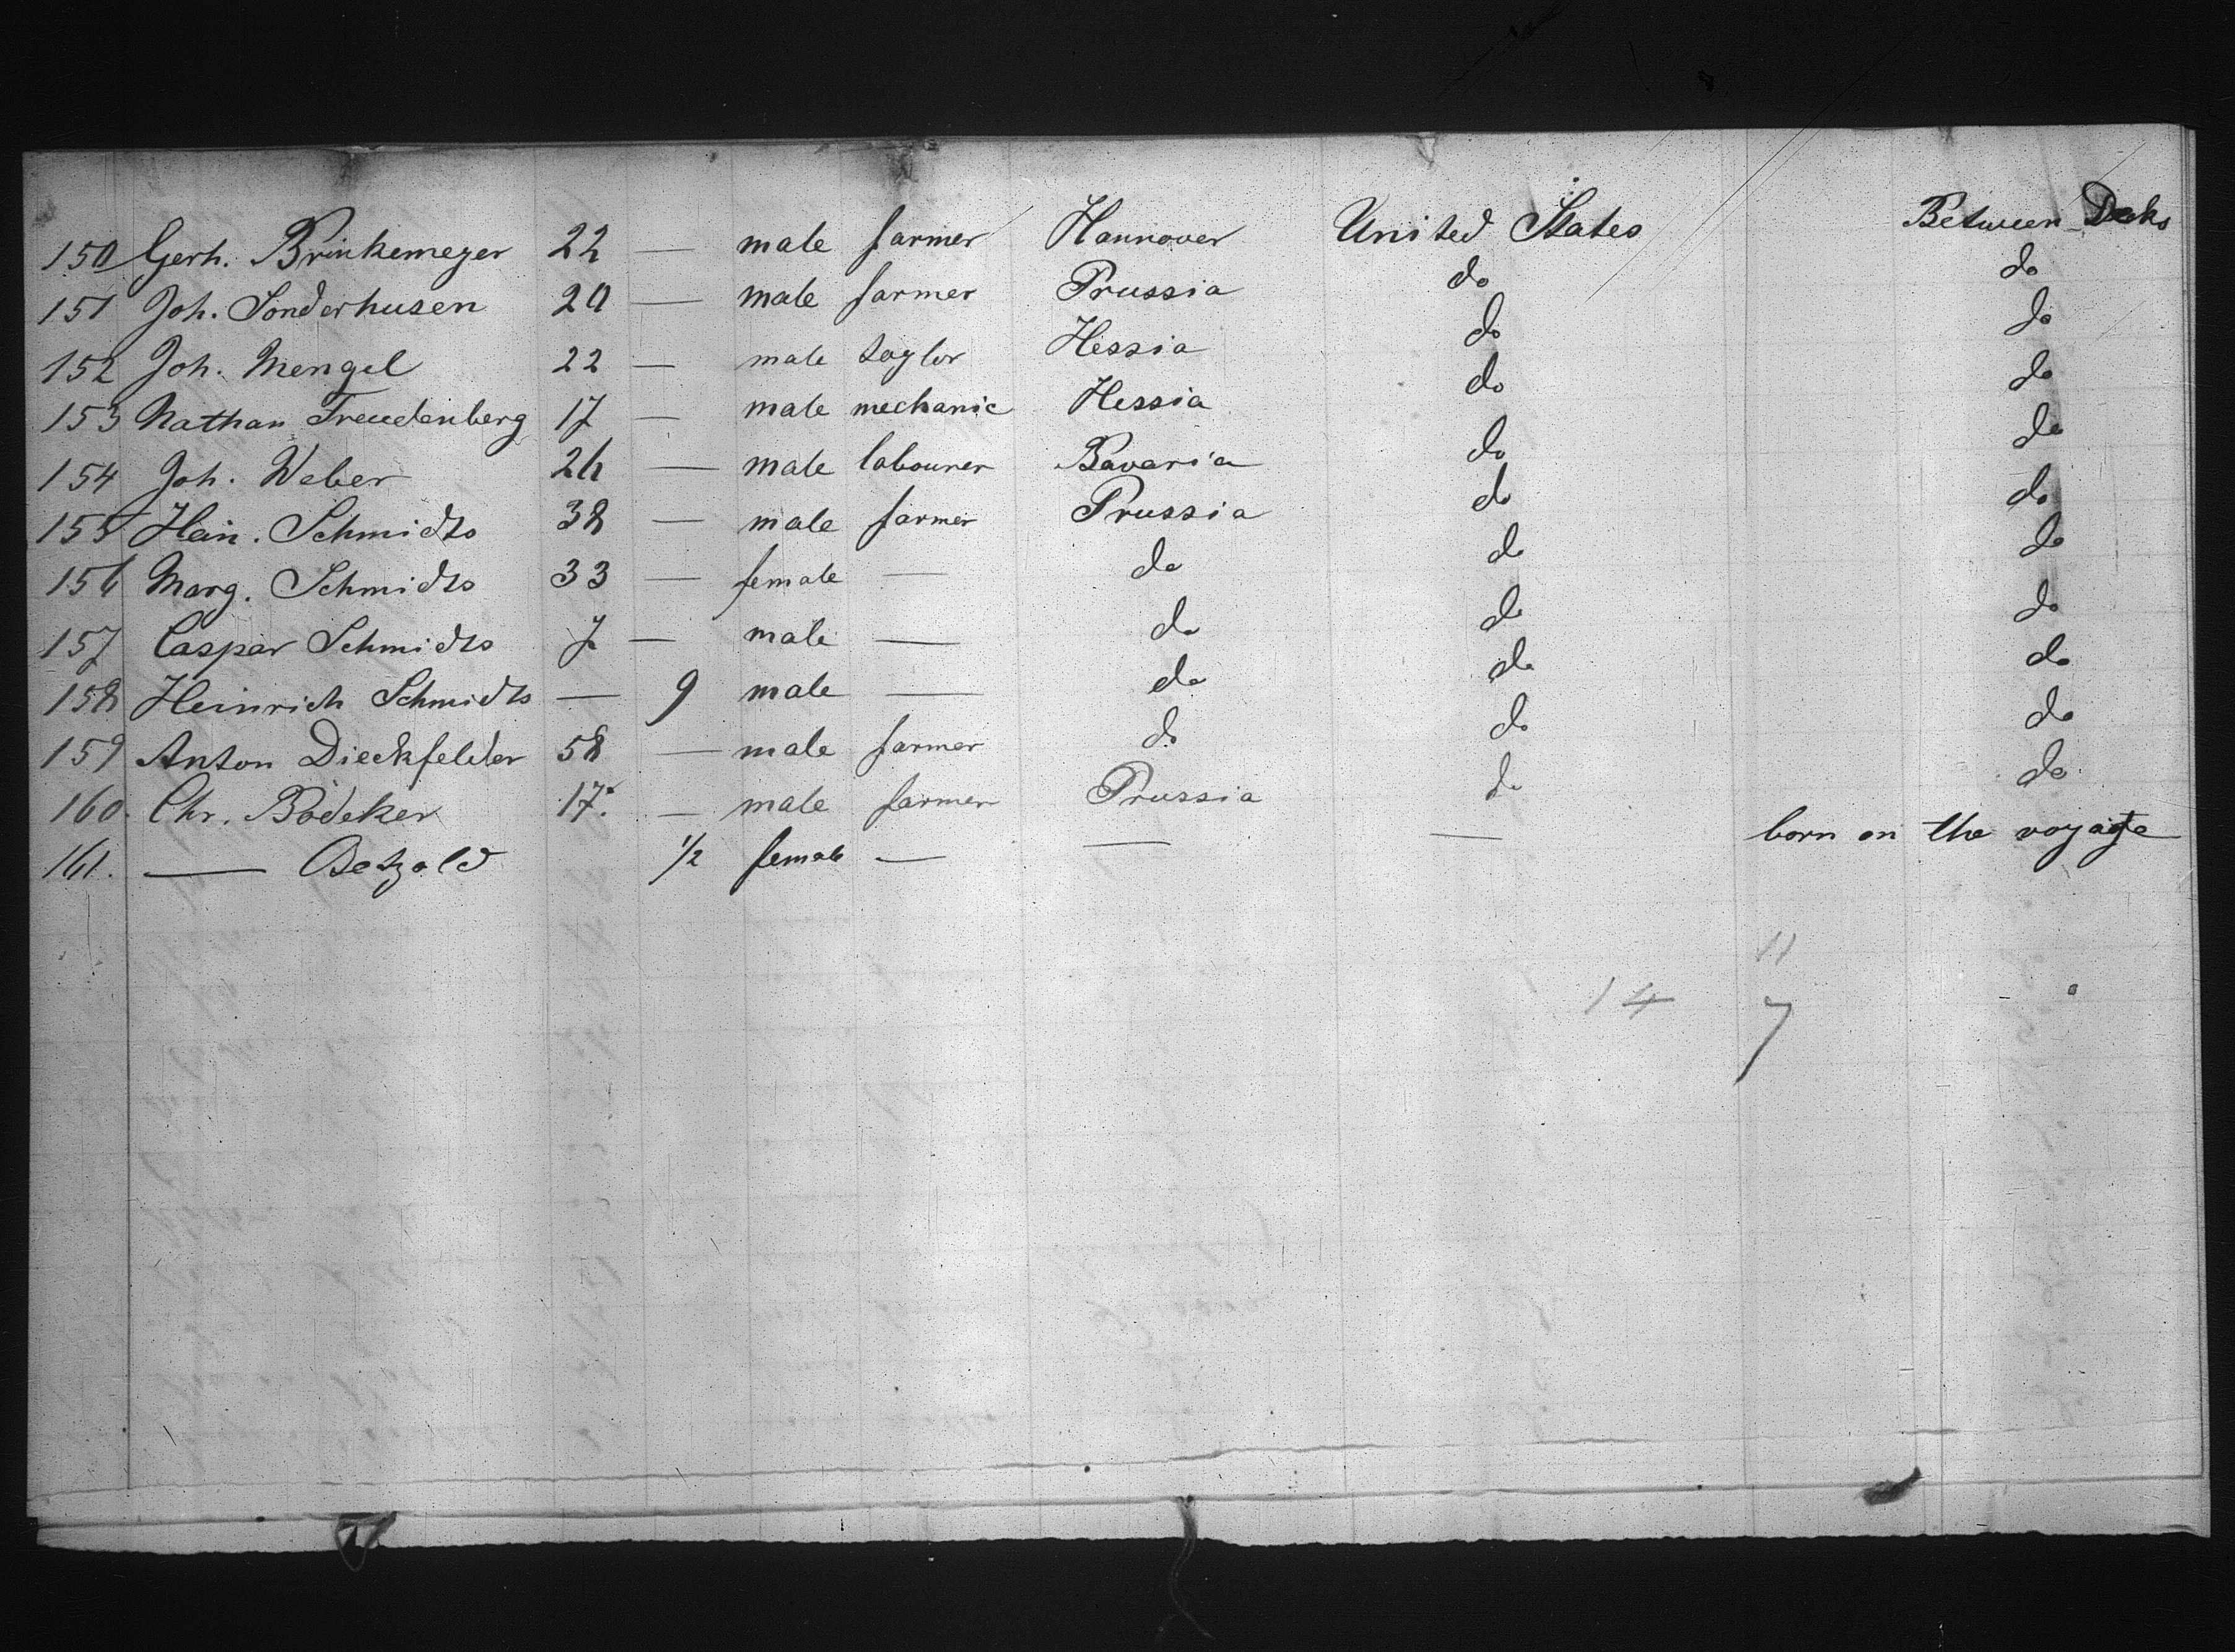 150 Gerh. Brinkemeyer 22 — male farmer Hannover United States Between Decks
151 Joh. Sonderhusen 20 — male farmer Prussia do do
152 Joh. Mengel 22 — male taylor Hessia do do
153 Nathan Freudenberg 17 — male mechanic Hessia do do
154 Joh. Weber 26 — male labourer Bavaria do do
155 Hein. Schmidts 38 — male farmer Prussia do do
156 Marg. Schmidts 33 — female — do do do
157 Caspar Schmidts 7 — male — do do do
158 Heinrich Schmidts — 9 male — do do do
159 Anton Dieckfelder 58 — male farmer do do do
160. Chr. Bödeker 17. — male farmer Prussia do do
161. — Betzold 1/2 female — — — born on the voyage
11
14 7